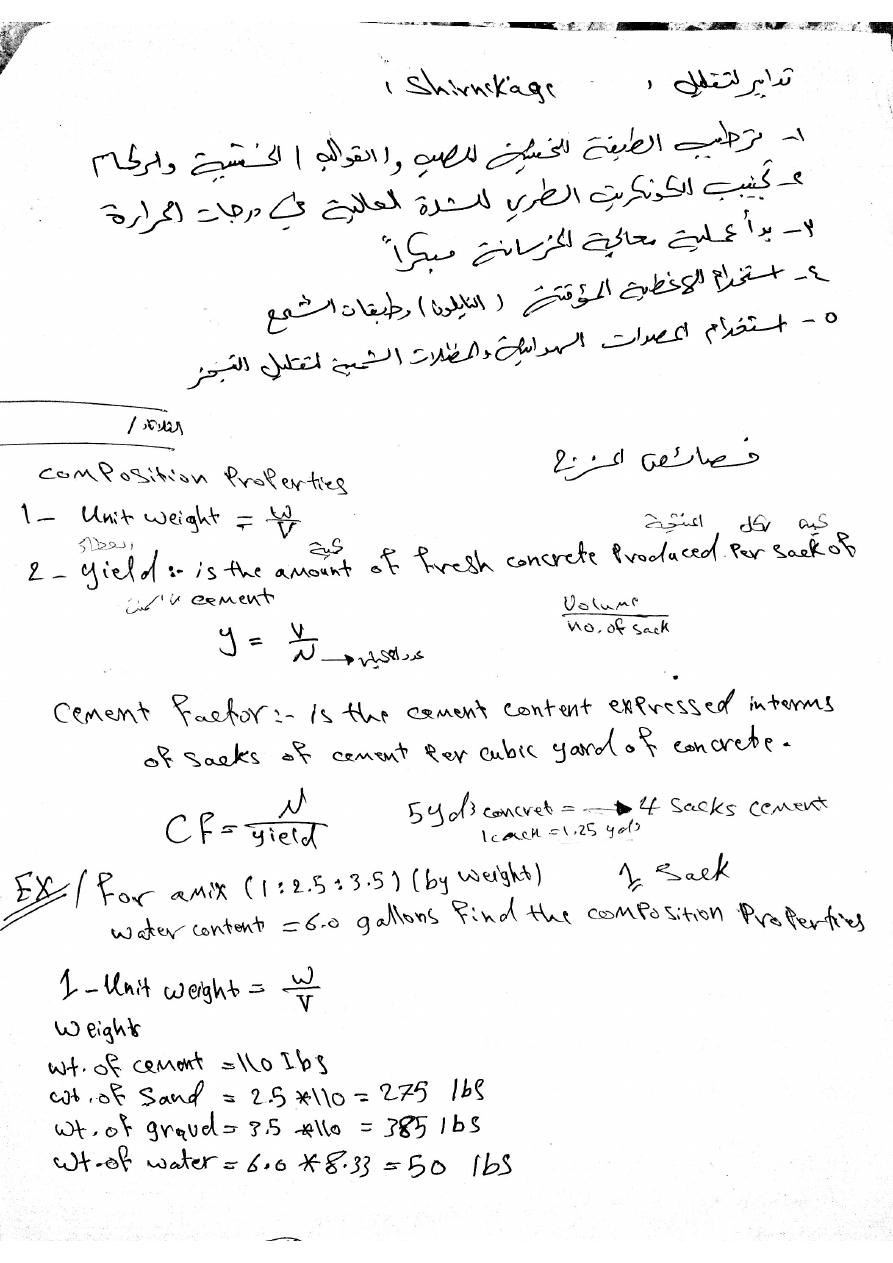 تدابير لتقليل ( Shirnckage )
١- ترطيب الطبقة التحتية للصب و ( القوالب ) الخشبية والركام
٢- تجنيب الكونكريت الطري للشدة العالية في درجات الحرارة
٣- بدأ عملية معالجة الخرسانة مبكراً
٤- استخدام الاغطية المؤقتة ( النايلون ) وطبقات الشمع
٥- استخدام المصدات الهوائية والمظلات الشمسية لتقليل التبخر
خصائص المزيج
Composition Properties
1- Unit weight = W/V
كمية لكل المنتجة
كمية
2- yield :- is the amount of fresh concrete Produced Per sack of
cement
Volume / no. of sack
y = V/N → عدد الاكياس
Cement factor :- is the cement content expressed interms
of sacks of cement Per cubic yard of concrete.
CF = N/yield
5 yd3 concret = → 4 sacks cement
= 1.25 yd3
EX / For amix (1:2.5:3.5) (by weight) 1 Sack
water content = 6.0 gallons Find the composition Properties
1- Unit weight = W/V
Weights
wt. of cement = 110 Ibs
wt. of Sand = 2.5 *110 = 275 lbs
wt. of gravel = 3.5 *110 = 385 lbs
wt. of water = 6.0 * 8.33 = 50 lbs